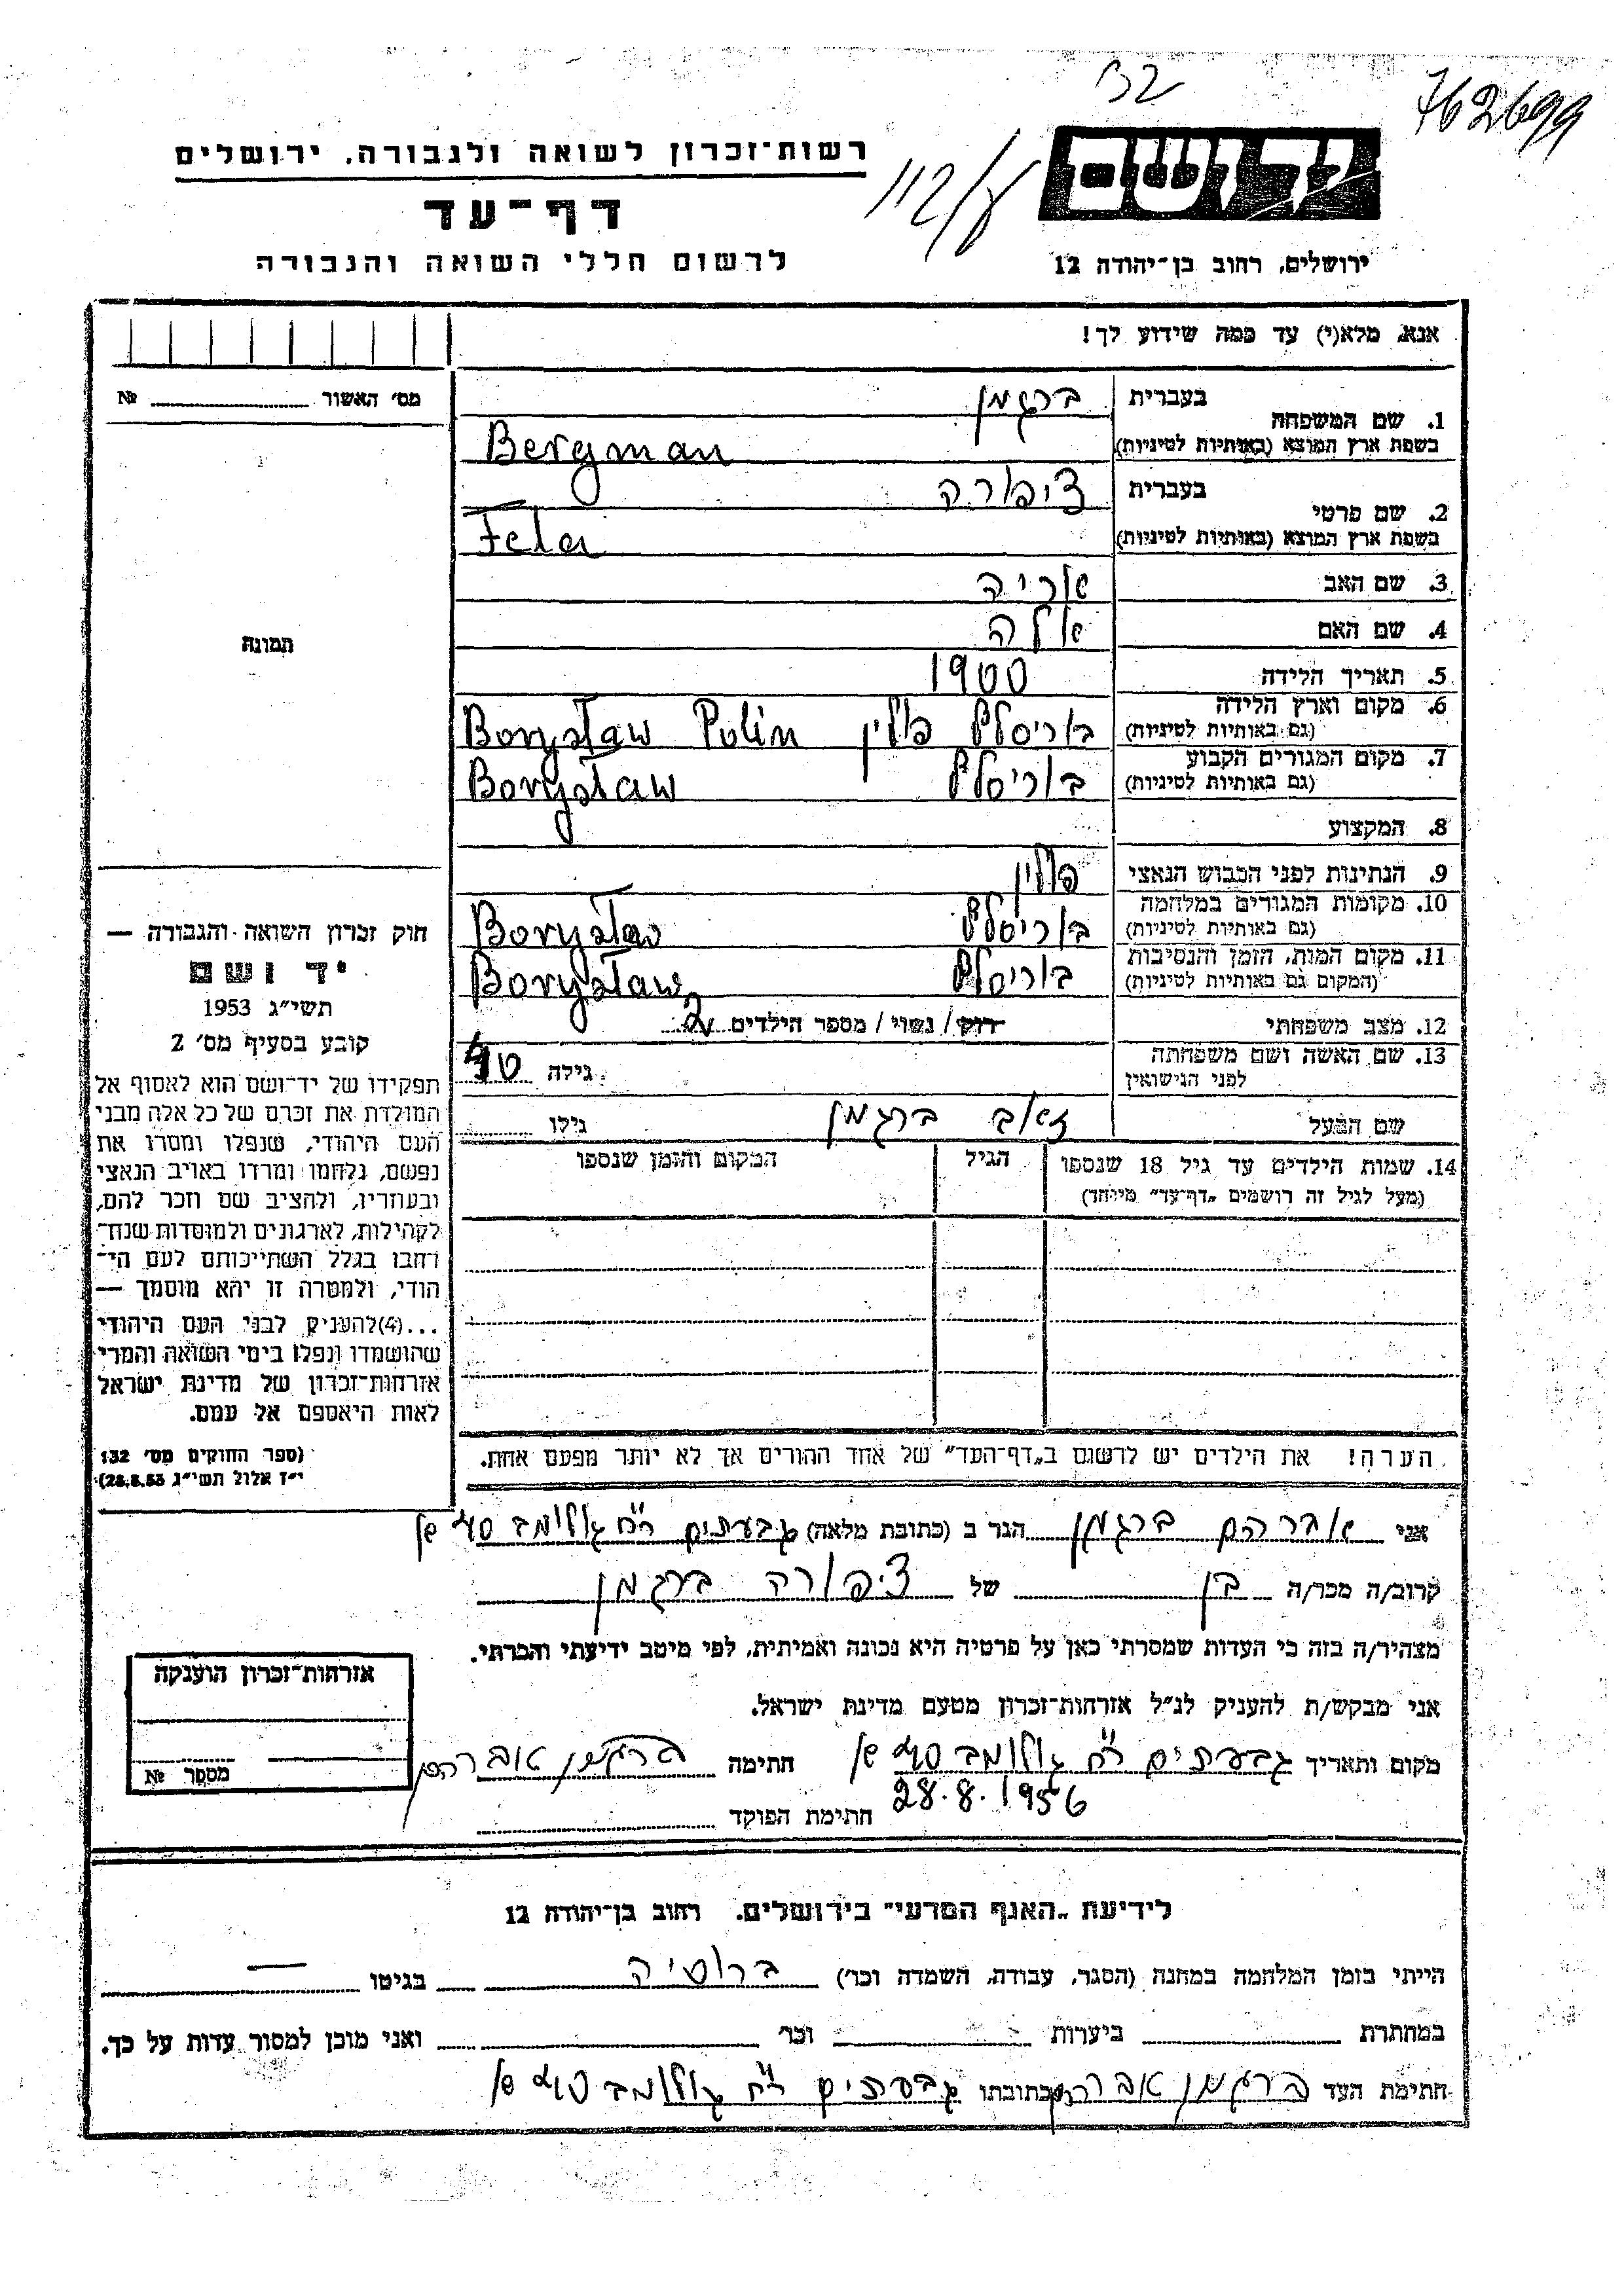 762699
32
יד ושם
112/8
רשות־זכרון לשואה ולגבורה, ירושלים
דף־עד
ירושלים, רחוב בן־יהודה 12
לרשום חללי השואה והגבורה
אנא, מלא(י) עד כמה שידוע לך!
מס׳ האשור № 
1. שם המשפחה בעברית ברגמן
בשפת ארץ המוצא (באותיות לטיניות) Bergman
2. שם פרטי בעברית ציפורה
בשפת ארץ המוצא (באותיות לטיניות) Fela
3. שם האב אריה
4. שם האם
תמונה
5. תאריך הלידה 1900
6. מקום וארץ הלידה
(גם באותיות לטיניות) בוריסלב פולין Borysław Polin
7. מקום המגורים הקבוע
(גם באותיות לטיניות) בוריסלב Borysław
8. המקצוע
9. הנתינות לפני הכבוש הנאצי פולין
10. מקומות המגורים במלחמה
(גם באותיות לטיניות) בוריסלב Borysław
11. מקום המות, הזמן והנסיבות
(המקום גם באותיות לטיניות) בוריסלב Borysław
12. מצב משפחתי רווק / נשוי / מספר הילדים 2
13. שם האשה ושם משפחתה
לפני הנישואין גילה 40
שם הבעל זאב ברגמן גילו
14. שמות הילדים עד גיל 18 שנספו הגיל המקום והזמן שנספו
(מעל לגיל זה רושמים „דף־עד” מיוחד)
חוק זכרון השואה והגבורה —
יד ושם
תשי״ג 1953
קובע בסעיף מס׳ 2
תפקידו של יד־ושם הוא לאסוף אל
המולדת את זכרם של כל אלה מבני
העם היהודי, שנפלו ומסרו את
נפשם, נלחמו ומרדו באויב הנאצי
ובעוזריו, ולהציב שם וזכר להם,
לקהילות, לארגונים ולמוסדות שנח־
רבו בגלל השתייכותם לעם הי־
הודי, ולמטרה זו יהא מוסמך —
...(4) להעניק לבני העם היהודי
שהושמדו ונפלו בימי השואה והמרי
אזרחות־זכרון של מדינת ישראל
לאות היאספם אל עמם.
(ספר החוקים מס׳ 132
י״ז אלול תשי״ג 28.8.53)
הערה! את הילדים יש לרשום ב„דף־העד” של אחד ההורים אך לא יותר מפעם אחת.
אני אברהם ברגמן הגר ב (כתובת מלאה) גבעתים רח׳ גולומב 40 א׳
קרוב/ה מכר/ה בן של ציפורה ברגמן
מצהיר/ה בזה כי העדות שמסרתי כאן על פרטיה היא נכונה ואמיתית, לפי מיטב ידיעתי והכרתי.
אני מבקש/ת להעניק לנ״ל אזרחות־זכרון מטעם מדינת ישראל.
מקום ותאריך גבעתים רח׳ גולומב 40 א׳ חתימה ברגמן אברהם
28.8.1956
חתימת הפוקד
אזרחות־זכרון הוענקה
מספר №
לידיעת „האגף המדעי” בירושלים, רחוב בן־יהודה 12
הייתי בזמן המלחמה במחנה (הסגר, עבודה, השמדה וכו׳) ברוסיה בגיטו —
במחתרת ביערות וכו׳ ואני מוכן למסור עדות על כך.
חתימת העד ברגמן אברהם כתובתו גבעתים רח׳ גולומב 40 א׳